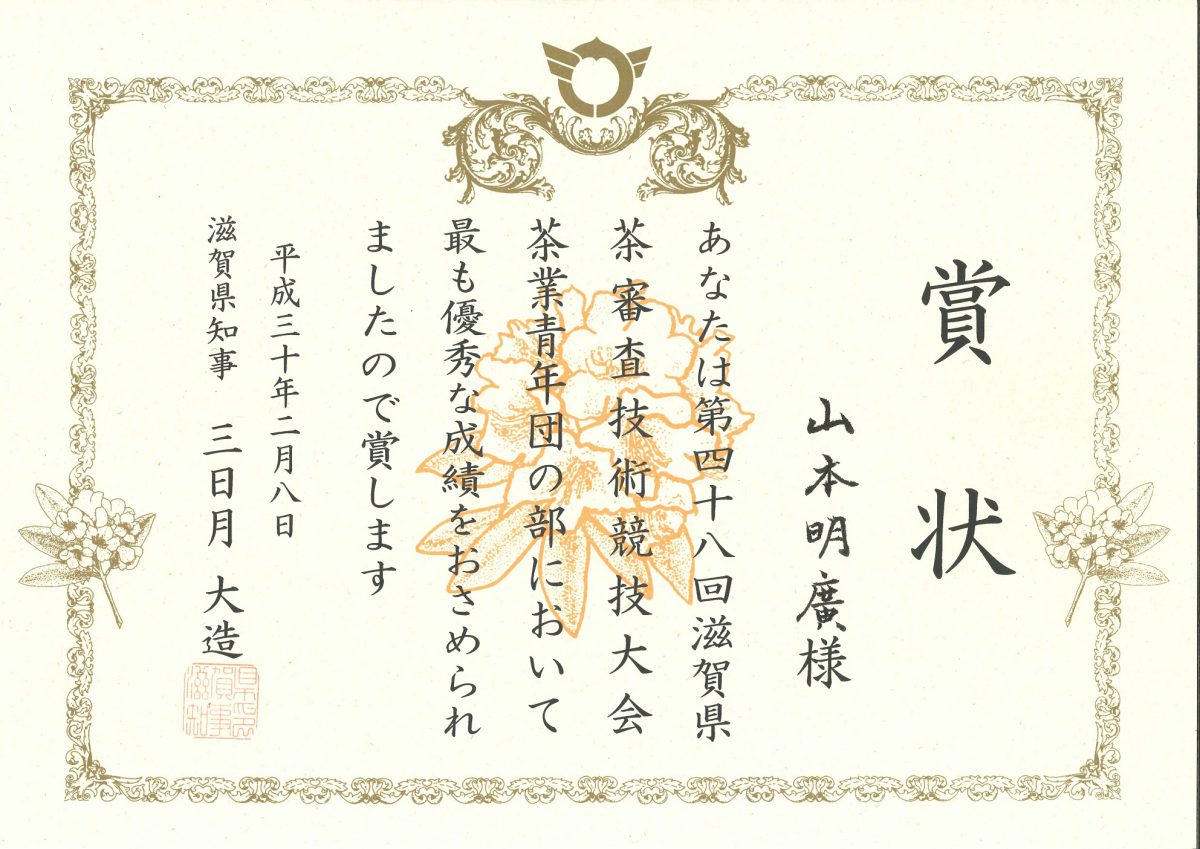 賞状
山本明廣様
あなたは第四十八回滋賀県
茶審査技術競技大会
茶業青年団の部において
最も優秀な成績をおさめられ
ましたので賞します
平成三十年二月八日
滋賀県知事 三日月大造
滋賀県知事之印